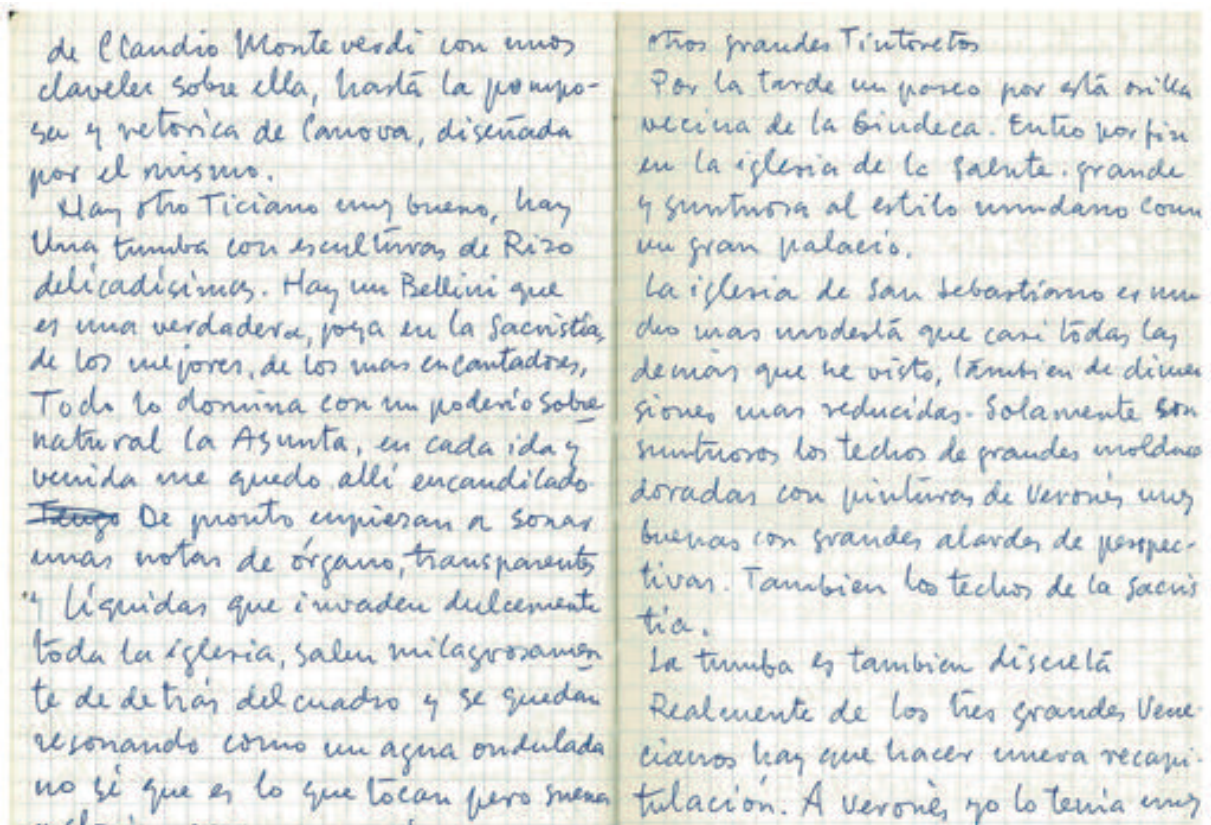 de Claudio Monteverdi con unos
claveles sobre ella, hasta la pompo-
sa y retorica de Canova, diseñada
por el mismo.
Hay otro Ticiano muy bueno, hay
Una tumba con esculturas de Rizo
delicadisimas. Hay un Bellini que
es una verdadera, joya en la Sacristia,
de los mejores, de los mas encantadores,
Todo lo domina con un poderío sobre
natural la Asunta, en cada ida y
venida me quedo allí encandilado
Tengo De pronto empiezan a sonar
unas notas de órgano, transparentes
y líquidas que invaden dulcemente
toda la iglesia, salen milagrosamen
te de detrás del cuadro y se quedan
resonando como un agua ondulada
no sé que es lo que tocan pero suena
otros grandes Tintoretos
Por la tarde un paseo por está orilla
vecina de la Giudeca. Entro por fin
en la iglesia de la Salute. grande
y suntuosa al estilo mundano como
un gran palacio.
La iglesia de San Sebastiano es mu
cho mas modestá que casi todas las
demás que he visto, támbien de dimen
siones mas reducidas. Solamente son
suntuosos los techos de grandes molduras
doradas con pinturas de Veronés muy
buenas con grandes alardes de perspec-
tivas. Tambien los techos de la sacris
tia.
La tumba es tambien discretá
Realmente de los tres grandes Vene
cianos hay que hacer nueva recapi-
tulación. A veronès yo lo tenia muy